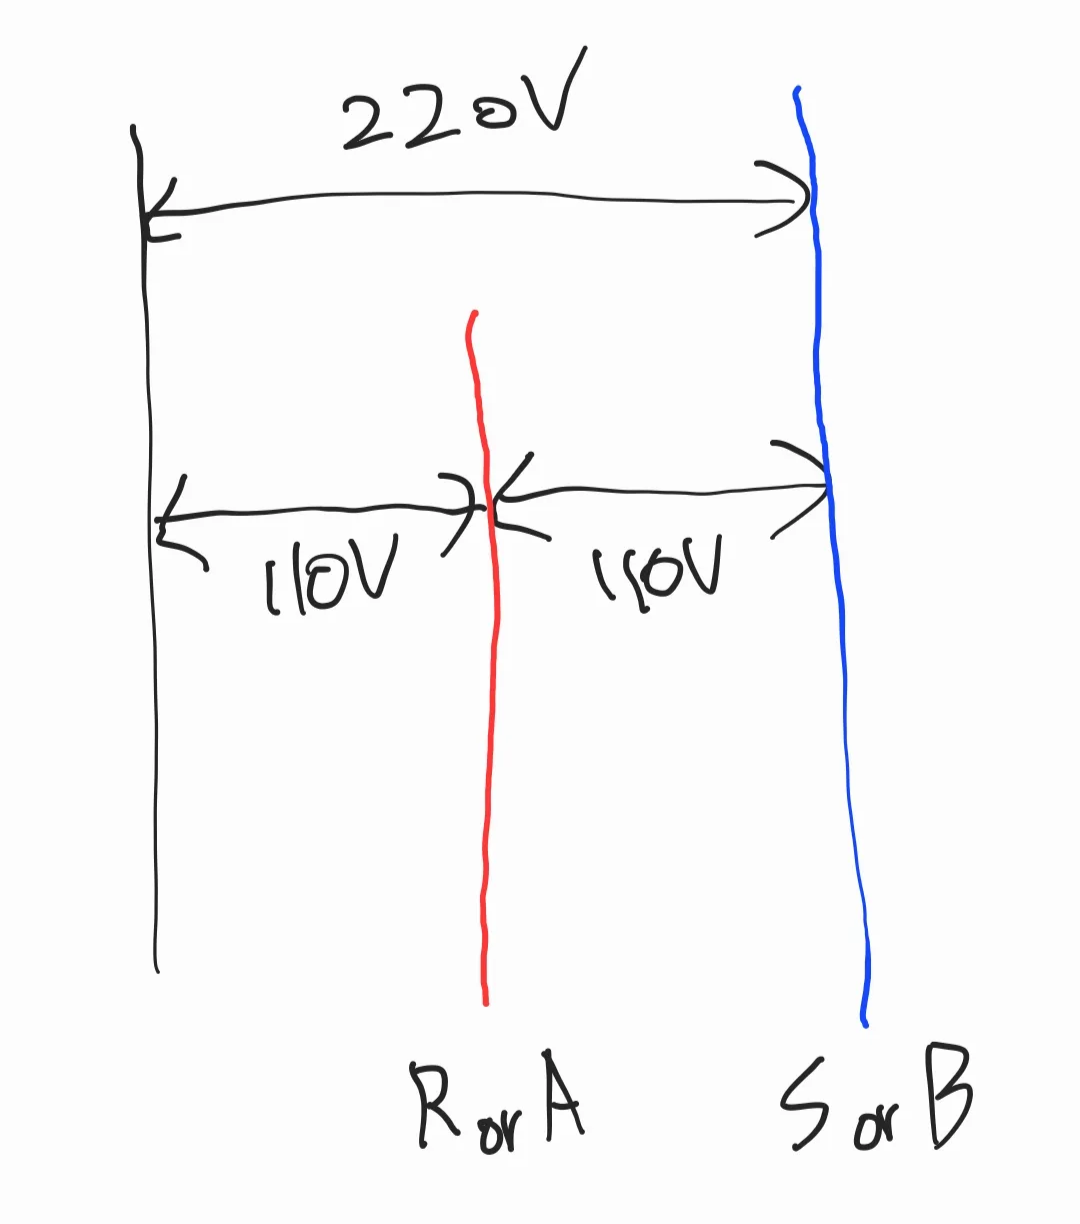 220V
110V 110V
R or A S or B